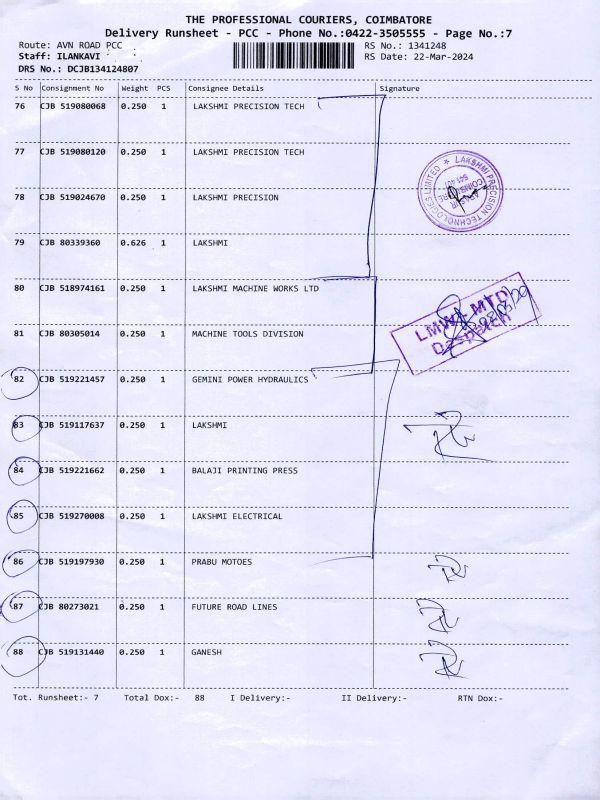 THE PROFESSIONAL COURIERS, COIMBATORE
Delivery Runsheet - PCC - Phone No.:0422-3505555 - Page No.:7
Route: AVN ROAD PCC RS No.: 1341248
Staff: ILANKAVI RS Date: 22-Mar-2024
DRS No.: DCJB134124807
S No Consignment No Weight PCS Consignee Details Signature
76 CJB 519080068 0.250 1 LAKSHMI PRECISION TECH
77 CJB 519080120 0.250 1 LAKSHMI PRECISION TECH
LAKSHMI PRECISION TECHNOLOGIES LIMITED
78 CJB 519024670 0.250 1 LAKSHMI PRECISION
79 CJB 80339360 0.626 1 LAKSHMI
80 CJB 518974161 0.250 1 LAKSHMI MACHINE WORKS LTD
LMW - MTD
Despatch
81 CJB 80305014 0.250 1 MACHINE TOOLS DIVISION
82 CJB 519221457 0.250 1 GEMINI POWER HYDRAULICS
83 CJB 519117637 0.250 1 LAKSHMI
84 CJB 519221662 0.250 1 BALAJI PRINTING PRESS
85 CJB 519270008 0.250 1 LAKSHMI ELECTRICAL
86 CJB 519197930 0.250 1 PRABU MOTOES
87 CJB 80273021 0.250 1 FUTURE ROAD LINES
88 CJB 519131440 0.250 1 GANESH
Tot. Runsheet:- 7 Total Dox:- 88 I Delivery:- II Delivery:- RTN Dox:-